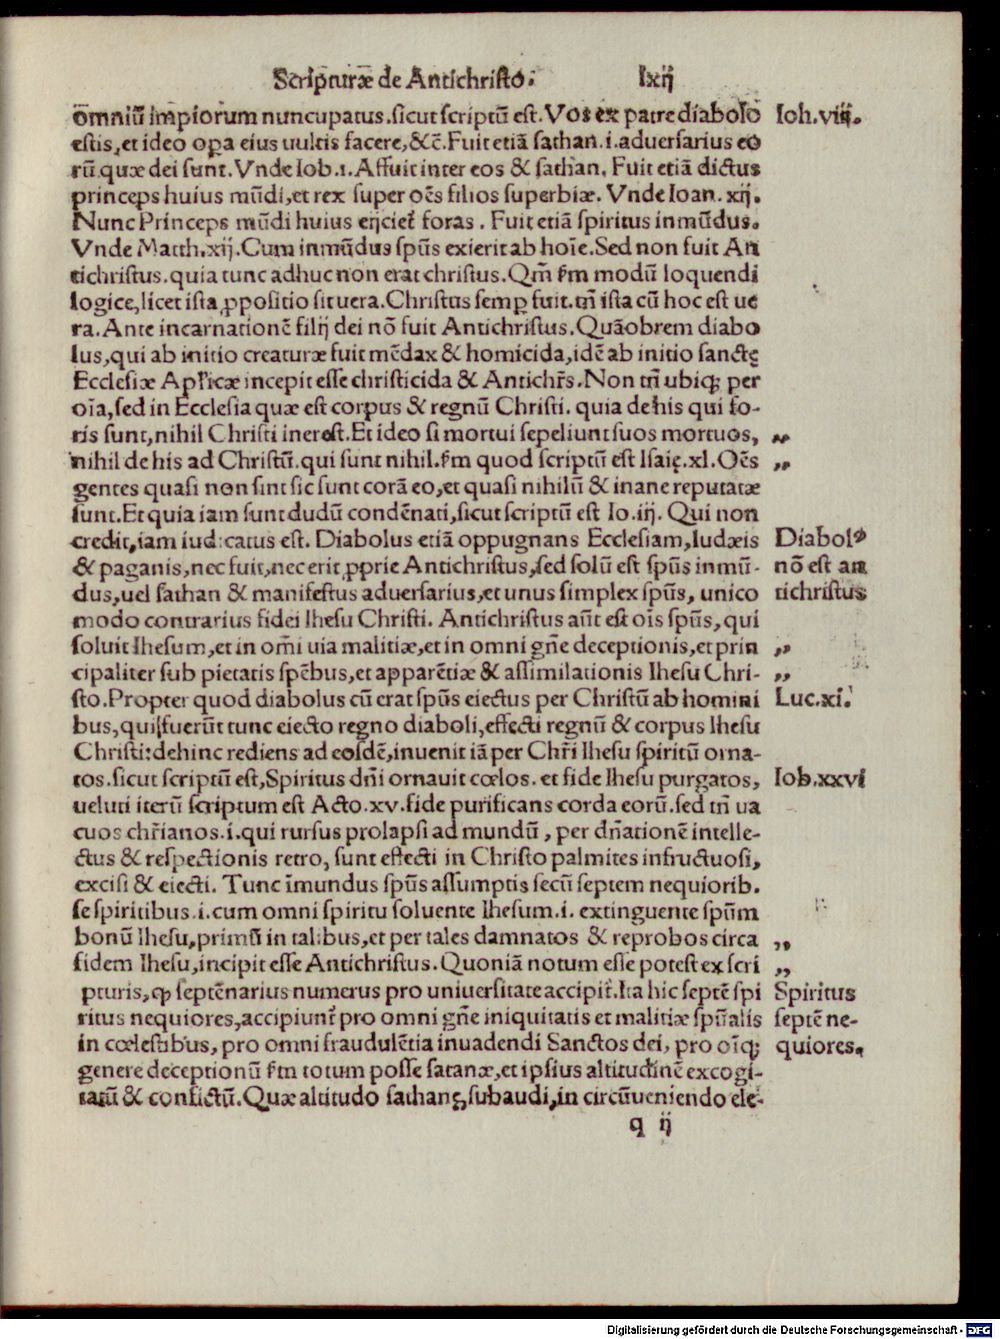 Scripturæ de Antichristo. lxij
om̄niū impiorum nuncupatus.sicut scriptū est.Vos ex patre diabolo Ioh.viij.
estis,et ideo opa eius uultis facere,&c̄.Fuit etiā sathan.i.aduersarius eo
rū quæ dei sunt.Vnde Iob.1.Affuit inter eos & sathan. Fuit etiā dictus
princeps huius mūdi,et rex super oēs filios superbiæ. Vnde Ioan.xij.
Nunc Princeps mūdi huius eijciet foras. Fuit etiā spiritus inmūdus.
Vnde Matth.xij.Cum inmūdus spūs exierit ab hoīe.Sed non fuit An
tichristus.quia tunc adhuc non erat christus.Qm̄ s̄m modū loquendi
logice,licet ista ꝓpositio sit uera.Christus semꝑ fuit.tn̄ ista cū hoc est ue
ra.Ante incarnationē filij dei nō fuit Antichristus.Quāobrem diabo
lus,qui ab initio creaturæ fuit mēdax & homicida,idē ab initio sanctę
Ecclesiæ Apl'icæ incepit esse christicida & Antichr̄s.Non tn̄ ubiqꝫ per
oīa,sed in Ecclesia quæ est corpus & regnū Christi. quia de his qui fo-
ris sunt,nihil Christi inerest.Et ideo si mortui sepeliunt suos mortuos, „
nihil de his ad Christū.qui sunt nihil.s̄m quod scriptū est Isaię.xl.Oēs „
gentes quasi non sint sic sunt corā eo,et quasi nihilū & inane reputatæ
sunt.Et quia iam sunt dudū condēnati,sicut scriptū est Io.iij. Qui non
credit,iam iudicatus est. Diabolus etiā oppugnans Ecclesiam,Iudæis Diabolꝰ
& paganis,nec fuit,nec erit ꝓprie Antichristus,sed solū est spūs inmū- nō est an
dus,uel sathan & manifestus aduersarius,et unus simplex spūs, unico tichristus
modo contrarius fidei Ihesu Christi. Antichristus aūt est oīs spūs, qui
soluit Ihesum,et in om̄i uia malitiæ,et in omni gn̄e deceptionis,et prin „
cipaliter sub pietatis spēbus,et apparētiæ & assimilationis Ihesu Chri- „
sto.Propter quod diabolus cū erat spūs eiectus per Christū ab homini Luc.xi.
bus, qui fuerūt tunc eiecto regno diaboli,effecti regnū & corpus Ihesu
Christi:dehinc rediens ad eosdē,inuenit iā per Chr̄i Ihesu spiritū orna-
tos.sicut scriptū est,Spiritus dn̄i ornauit cœlos. et fide Ihesu purgatos, Iob.xxvi
ueluti iterū scriptum est Acto.xv.fide purificans corda eorū.sed tn̄ ua
cuos chr̄ianos.i.qui rursus prolapsi ad mundū, per dn̄ationē intelle-
ctus & respectionis retro, sunt effecti in Christo palmites infructuosi,
excisi & eiecti. Tunc īmundus spūs assumptis secū septem nequiorib.
se spiritibus.i.cum omni spiritu soluente Ihesum.i. extinguente spūm
bonū Ihesu,primū in talibus,et per tales damnatos & reprobos circa „
fidem Ihesu,incipit esse Antichristus.Quoniā notum esse potest ex scri „
pturis,ꝙ septēnarius numerus pro uniuersitate accipit̄.Ita hic septē spi Spiritus
ritus nequiores,accipiunt̄ pro omni gn̄e iniquitatis et malitiæ spūalis septē ne-
in cœlestibus, pro omni fraudulētia inuadendi Sanctos dei, pro oīqꝫ quiores.
genere deceptionū s̄m totum posse satanæ,et ipsius altitudinē excogi-
tatū & confictū.Quæ altitudo sathanę,subaudi,in circūueniendo ele-
q ij
Digitalisierung gefördert durch die Deutsche Forschungsgemeinschaft - DFG